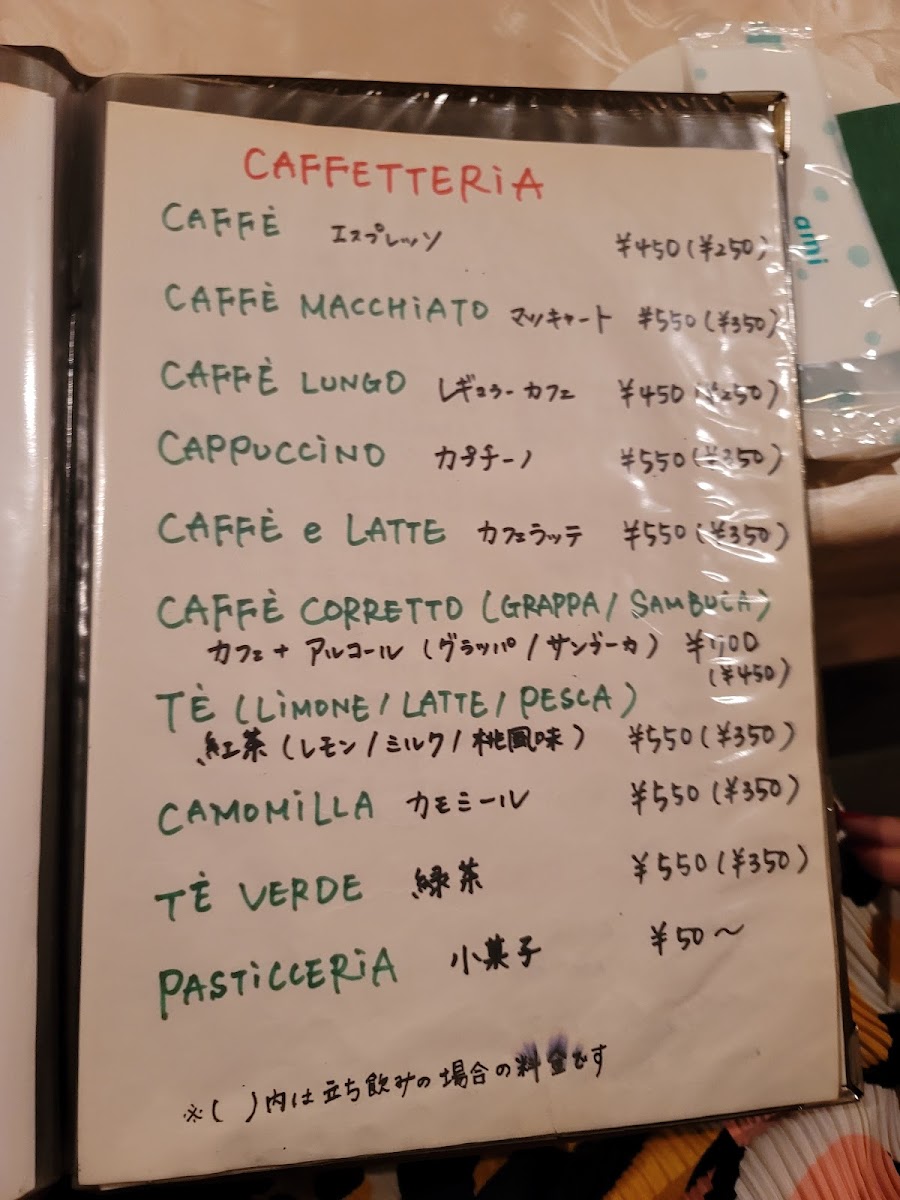 CAFFETTERiA
CAFFÈ エスプレッソ ¥450(¥250)
CAFFÈ MACCHiATO マッキャート ¥550(¥350)
CAFFÈ LUNGO レギュラーカフェ ¥450(¥250)
CAPPUCCiNO カプチーノ ¥550(¥350)
CAFFÈ e LATTE カフェラッテ ¥550(¥350)
CAFFÈ CORRETTO (GRAPPA/SAMBUCA)
カフェ+アルコール(グラッパ/サンブーカ)
(¥450)
TÈ (LiMONE/LATTE/PESCA)
紅茶(レモン/ミルク/桃風味) ¥550(¥350)
CAMOMiLLA カモミール ¥550(¥350)
TÈ VERDE 緑茶 ¥550(¥350)
PASTiCCERiA 小菓子 ¥50〜
※( )内は立ち飲みの場合の料金です
ami